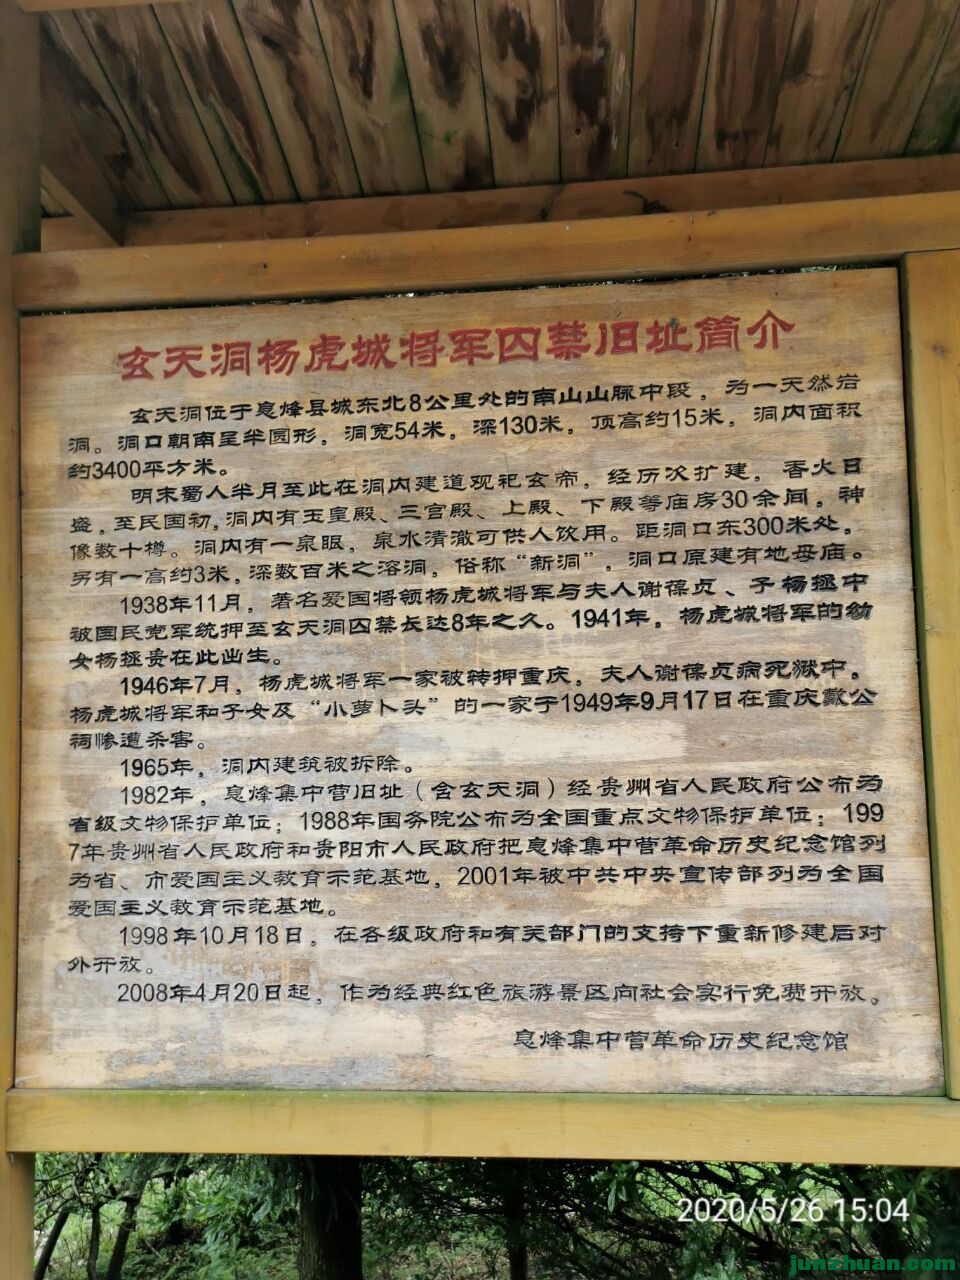 玄天洞杨虎城将军囚禁旧址简介
玄天洞位于息烽县城东北8公里处的南山山脉中段，为一天然岩
洞。洞口朝南呈半圆形，洞宽54米，深130米，顶高约15米，洞内面积
约3400平方米。
明末蜀人半月至此在洞内建道观祀玄帝，经历次扩建，香火日
盛，至民国初，洞内有玉皇殿、三官殿、上殿、下殿等庙房30余间，神
像数十樽。洞内有一泉眼，泉水清澈可供人饮用。距洞口东300米处，
另有一高约3米，深数百米之溶洞，俗称“新洞”，洞口原建有地母庙。
1938年11月，著名爱国将领杨虎城将军与夫人谢葆贞、子杨拯中
被国民党军统押至玄天洞囚禁长达8年之久。1941年，杨虎城将军的幼
女杨拯贵在此出生。
1946年7月，杨虎城将军一家被转押重庆，夫人谢葆贞病死狱中。
杨虎城将军和子女及“小萝卜头”的一家于1949年9月17日在重庆戴公
祠惨遭杀害。
1965年，洞内建筑被拆除。
1982年，息烽集中营旧址（含玄天洞）经贵州省人民政府公布为
省级文物保护单位；1988年国务院公布为全国重点文物保护单位；199
7年贵州省人民政府和贵阳市人民政府把息烽集中营革命历史纪念馆列
为省、市爱国主义教育示范基地，2001年被中共中央宣传部列为全国
爱国主义教育示范基地。
1998年10月18日，在各级政府和有关部门的支持下重新修建后对
外开放。
2008年4月20日起，作为经典红色旅游景区向社会实行免费开放。
息烽集中营革命历史纪念馆
2020/5/26 15:04
junzhuan.com